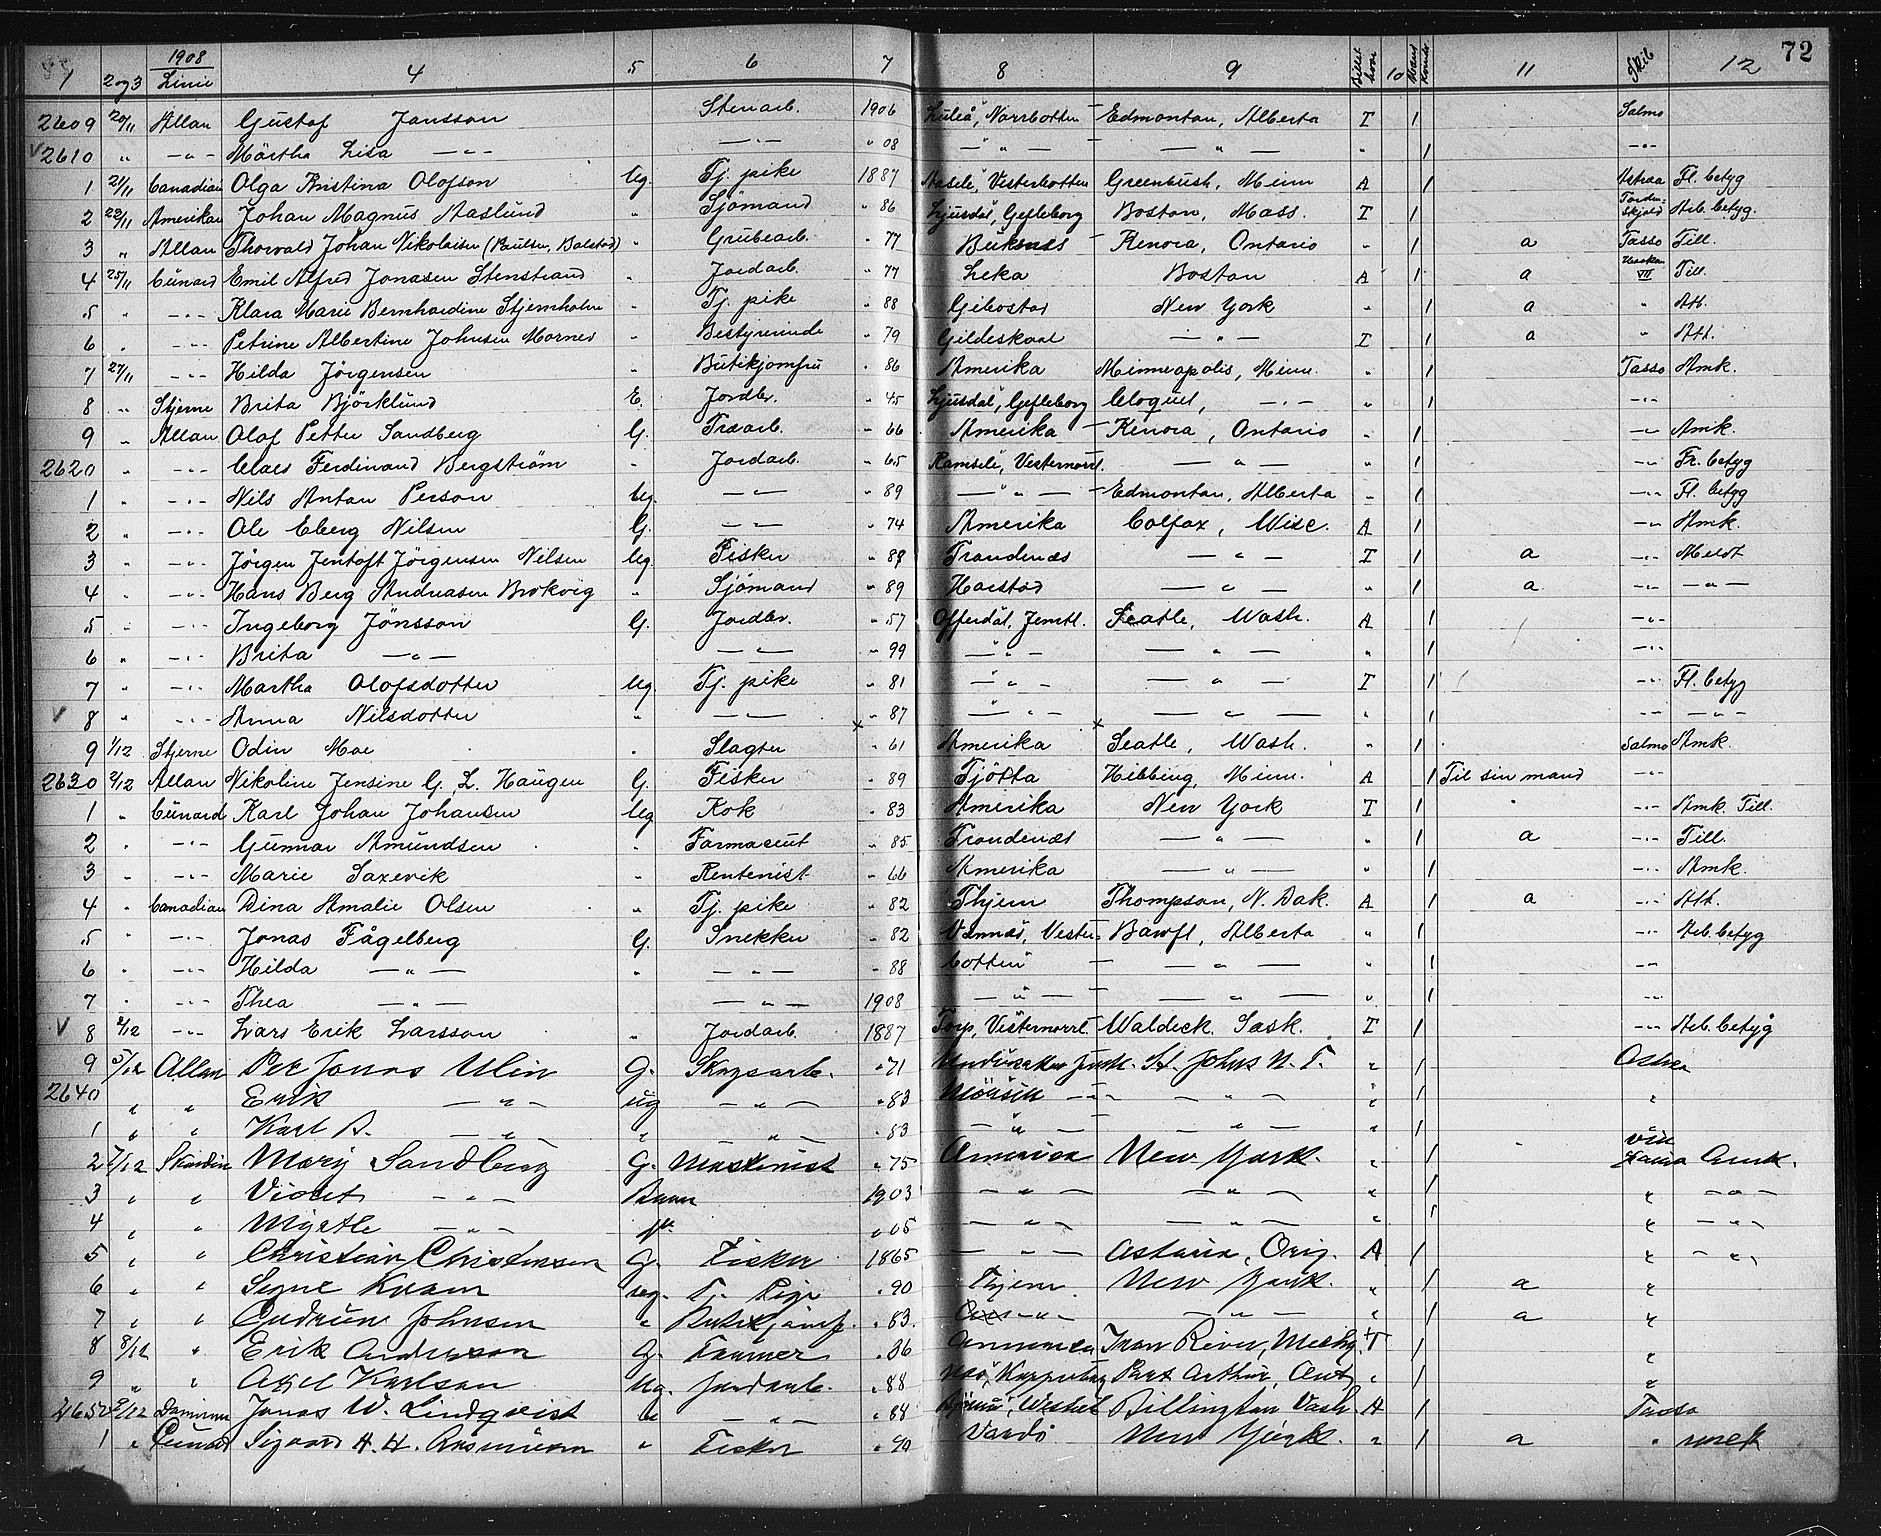 1908 72
1 2 og 3 Linie 4 5 6 7 8 9 Billet hvor 10 Mand Kvinde 11 Skib 12
2609 20/11 Allan Gustaf Jansson Stenarb. 1906 Luleå, Norrbotten Edmonton, Alberta I 1 Salmo
V 2610 " —"— Märtha Lisa —"— —"— " 08 —"— —"— " 1 —"—
1 21/11 Canadian Olga Kristina Olofson Ug. Tj. pike 1887 Aasele, Vesterbotten Greenbush, Minn A 1 Astraa Fl. betyg
2 22/11 Amerikan Johan Magnus Aaslund " Sjömand " 86 Ljusdal, Gefleborg Boston, Mass. I 1 Tordenskjold Arb. betyg.
3 " Allan Thorvald Johan Nikolaisen (Paulsen, Balstad) " Grubearb. " 77 Buksnes Kenora, Ontario " 1 a Tasso Till.
4 25/11 Cunard Emil Alfred Jonasen Stenstrand " Jordarb. " 77 Leka Boston A 1 a VII Till.
5 " —"— Klara Marie Bernhardine Stjernholm " Tj. pike " 88 Gibostad New York " 1 a " Att.
6 " —"— Petrine Albertine Johnsen Mornes " Bestyrerinde " 79 Gildeskaal —"— I 1 a " Att.
7 27/11 —"— Hilda Jörgensen " Butikjomfru " 86 Amerika Minneapolis, Minn. " 1 Tasso Amk.
8 " Stjerne Brita Björklund E. Jordbr. " 45 Ljusdal, Gefleborg Cloquet, —"— " 1 —"—
9 " Allan Olof Petter Sandberg G. Træarb. " 66 Amerika Kenora, Ontario " 1 —"— Amk.
2620 " —"— Claes Ferdinand Bergström " Jordarb. " 65 Ramsele, Vesternorrl. —"— " 1 —"— Fr. betyg
1 " —"— Nils Anton Person Ug. —"— " 89 —"— Edmonton, Alberta " 1 —"— Fl. betyg
2 " —"— Ole Eberg Nilsen G. —"— " 74 Amerika Colfax, Wisc. A 1 —"— Amk.
3 " —"— Jörgen Jentoft Jörgensen Nilsen Ug. Fisker " 87 Trondenæs —"— I 1 a —"— Meldt
4 " —"— Hans Berg Andreasen Brokvig " Sjömand " 89 Harstad —"— " 1 a —"— —"—
5 " —"— Ingeborg Jönsson G. Jordbr. " 57 Offerdal, Jemtl. Seatle, Wash. A 1 —"—
6 " —"— Brita —"— —"— " 99 —"— —"— " 1 —"—
7 " —"— Martha Olofsdotter Ug. Tj. pike " 81 —"— —"— I 1 —"— Fl. betyg
V 8 " —"— Anna Nilsdotter " —"— " 87 —"— —"— " 1 —"— —"—
9 1/12 Stjerne Odin Moe " Slagter x " 61 Amerika x Seatle, Wash. " 1 Salmo Amk.
2630 2/12 Allan Nikoline Jensine G. L. Haugen G. Fisker " 89 Tjötta Hibbing, Minn. A 1 Til sin mand —"—
1 " Cunard Karl Johan Johansen Ug Kok " 83 Amerika New York I 1 " —"— Amk. Till.
2 " —"— Gunnar Amundsen " Farmaceut " 85 Trondenæs —"— " 1 a —"— Till.
3 " —"— Marie Saxevik " Rentenist " 66 Amerika —"— " 1 —"— Amk.
4 " Canadian Dina Amalie Olsen " Tj. pike " 82 Thjem Thompson, N. Dak. A 1 a —"— Att.
5 " —"— Jonas Fågelberg G. Snekker " 82 Vännäs, Vester- Banff, Alberta " 1 —"— Arb. betyg
6 " —"— Hilda —"— " —"— " 88 botten —"— " 1 —"—
7 " —"— Thea —"— —"— 1908 —"— —"— " 1 —"—
V 8 2/12 —"— Lars Erik Larsson " Jordarb. 1887 Torp, Vesternorrl. Waldeck Sask. I 1 —"— Arb. betyg
9 5/12 Allan Per Jonas Ulin G. Skogsarb. " 71 St. Johns N. F. " 1 Oslo
2640 " " Erik —"— ug —"— " 83 —"— " 1 "
1 " " Karl A. —"— " —"— " 83 —"— —"— " 1
2 7/12 Skandin Mary Sandberg G. Maskinist " 75 Amerika New York. " 1 Amk.
3 " " Violet —"— Barn 1903 —"— —"— " 1 " —"—
4 " " Myrtle —"— " 05 —"— —"— " 1 " —"—
5 " " Christian Christensen G. Fisker 1865 —"— Astoria, Orig. A 1 " —"—
6 " " Signe Kvam ug. Tj. Pige " 90 Thjem New York. " 1 a "
7 " " Gudrun Johnsen " Butikjomf. " 83. —"— —"— " 1 a "
8 8/12 " Erik Anderson G. Farmer " 36 Amerika Iron River, Michg. I 1 "
9 " " Axel Karlson Ug. Jordarb. " 88 Port Arthur, Ont " 1 "
2650 9/12 Dominion Jonas W. Lindqvist " —"— " 84 Billington Vash A 1 Tasso
1 " Cunard Sigvard H. H. Rasmussen " Fisker " 90 Vardö New York. " 1 a "